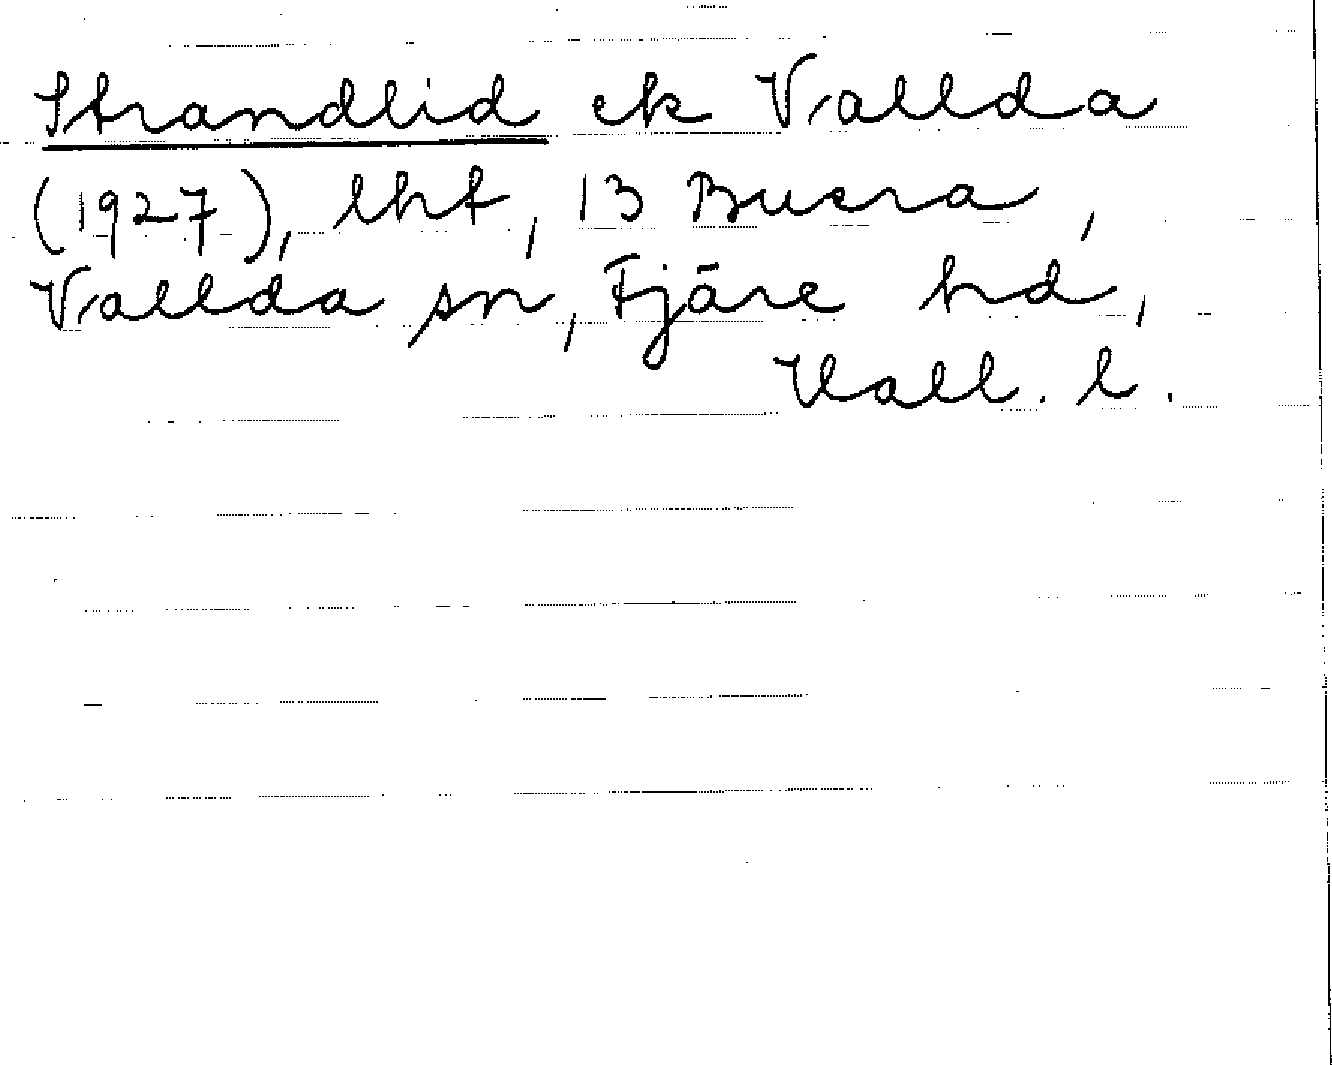 Strandlid ek Vallda
(1927), lht, 13 Buera,
Vallda sn, Fjäre hd,
Hall. l.